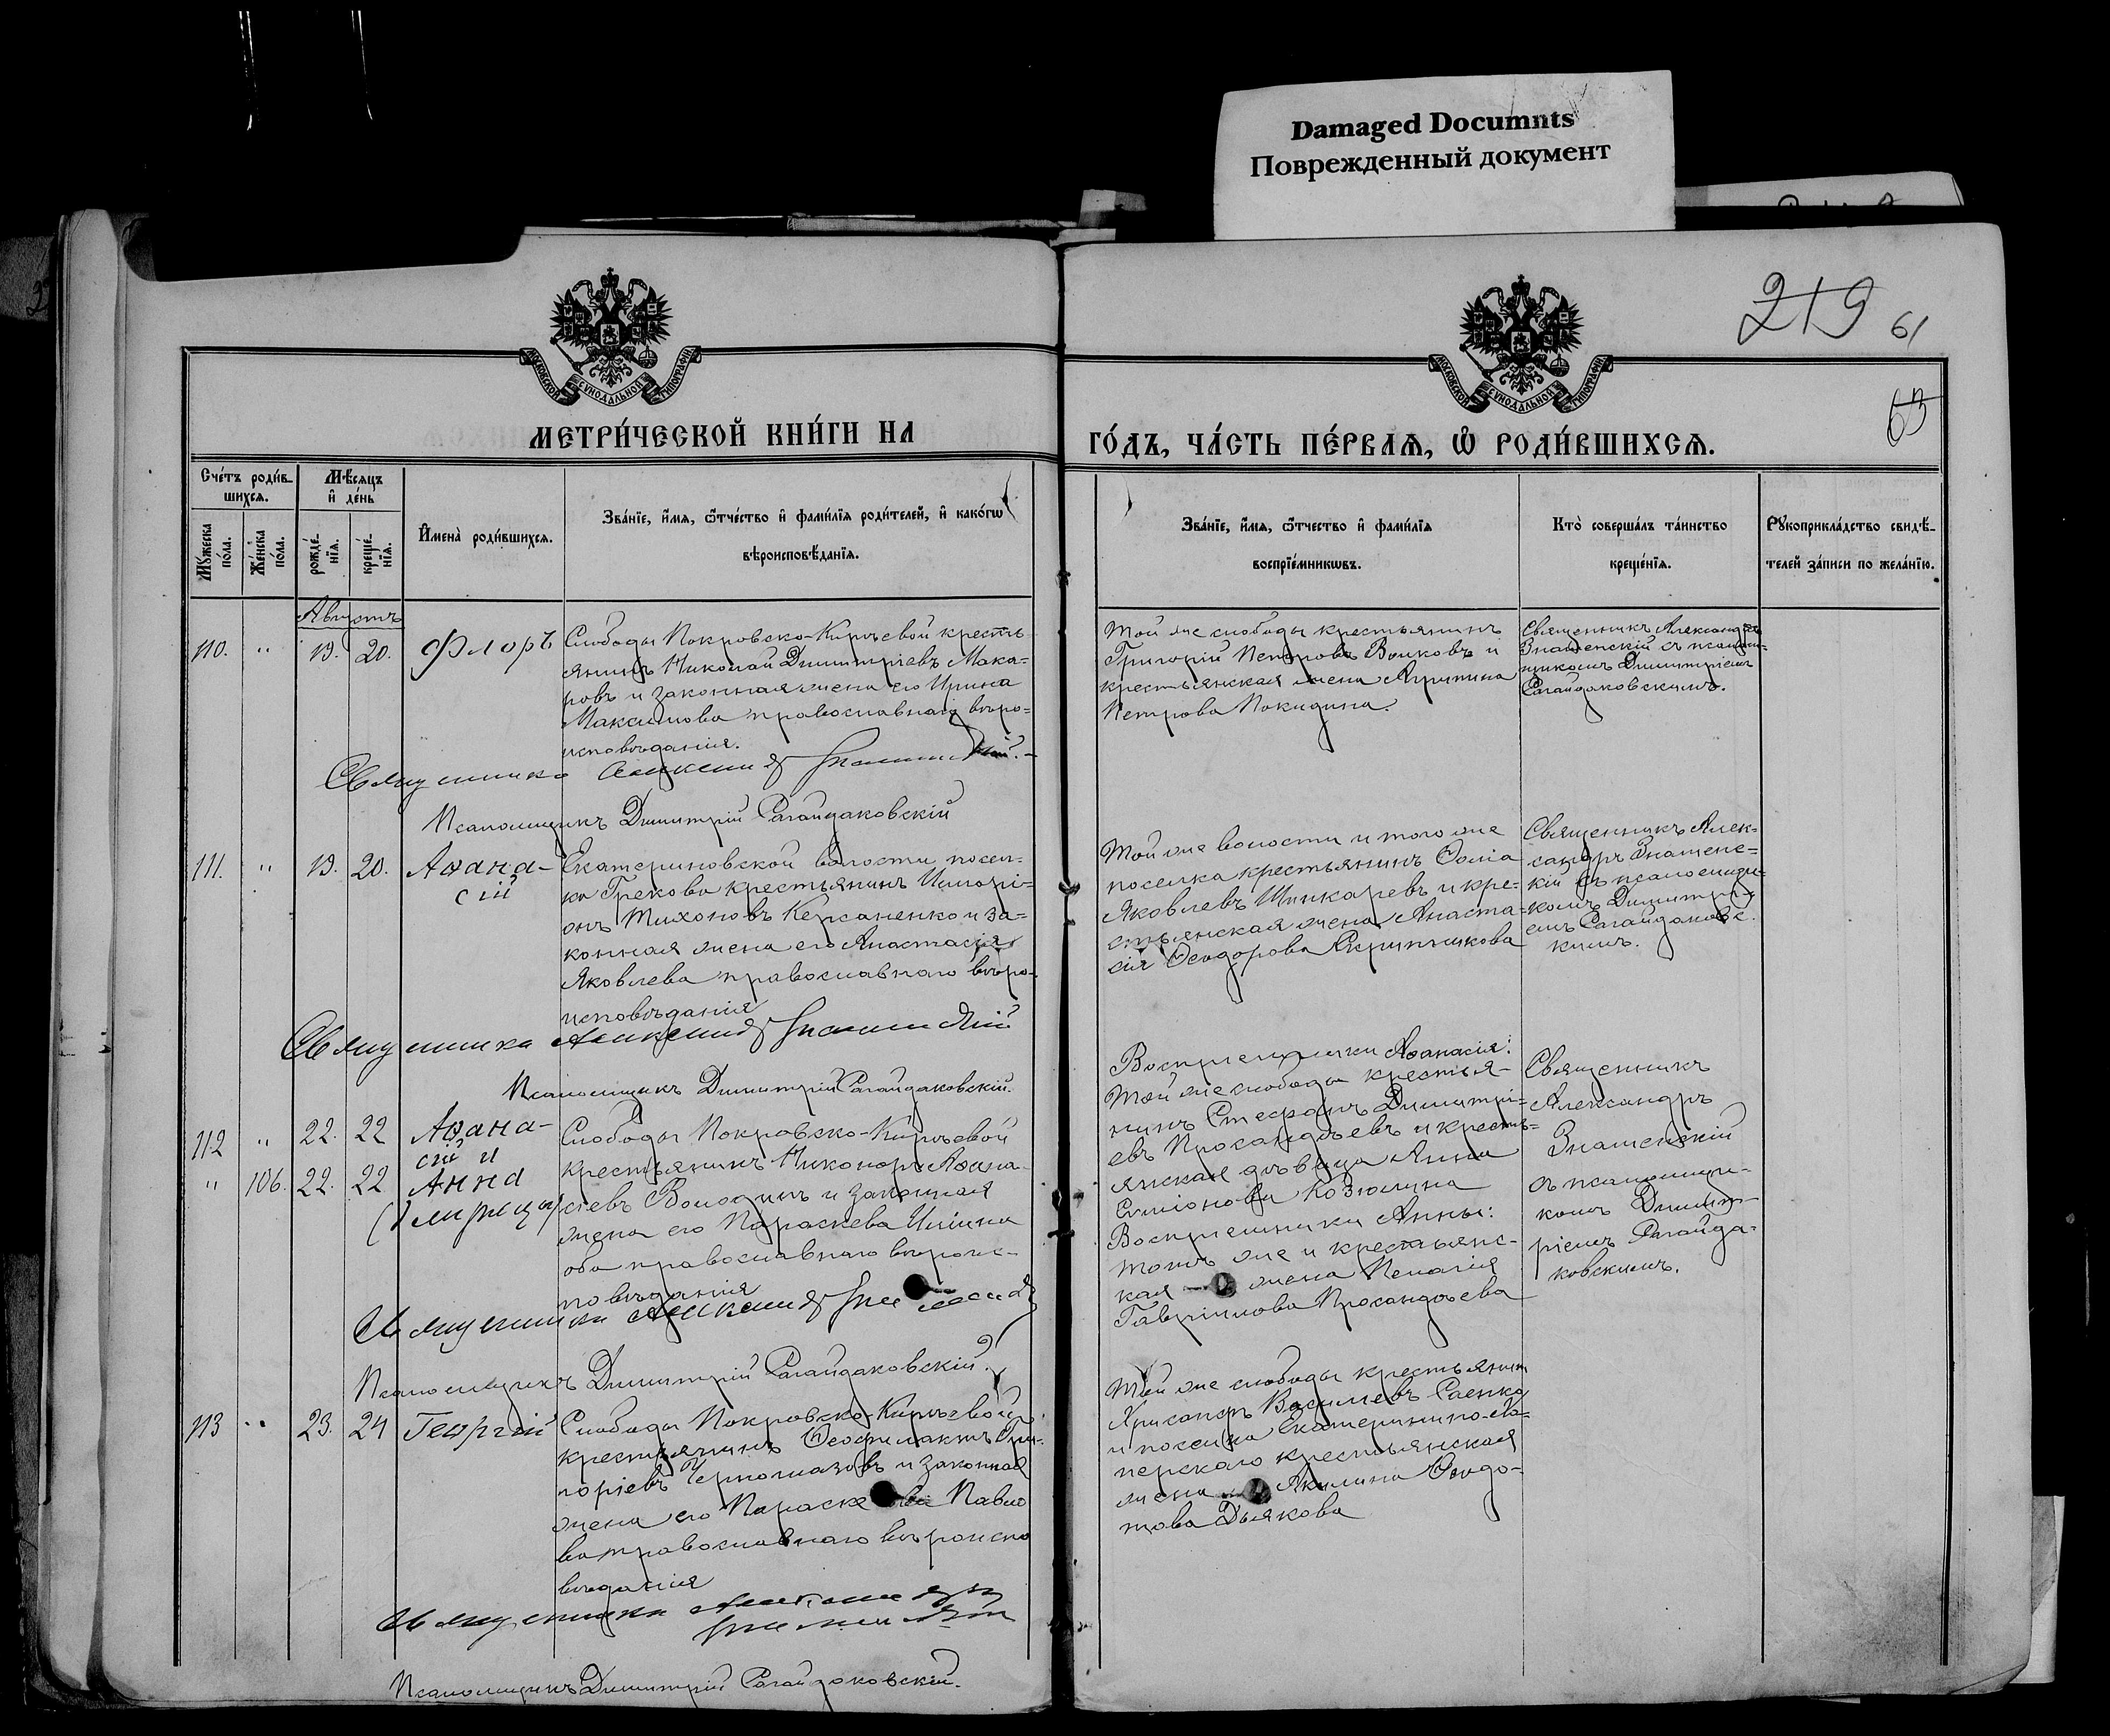 Damaged Documnts
Поврежденный документ
219 61
63
МОСКОВСКОЙ СѴНОДАЛЬНОЙ ТИПОГРАФІИ
МОСКОВСКОЙ СѴНОДАЛЬНОЙ ТИПОГРАФІИ
МЕТРИ́ЧЕСКОЙ КНИ́ГИ НА
ГО́ДЪ, ЧА́СТЬ ПЕ́РВАѦ, Ѽ РОДИ́ВШИХСѦ.
Счетъ роди́в-
шихсѧ.
Мѣ́сѧцъ
и҆ де́нь
Мꙋ́жеска
по́ла.
Же́нска
по́ла.
рожде́-
нїѧ.
креще́-
нїѧ.
И҆мена̀ роди́вшихсѧ.
Зва́нїе, и҆́мѧ, ѻ҆́тчество и҆ фами́лїѧ роди́телей, и҆ како́гѡ
вѣроисповѣ́данїѧ.
Зва́нїе, и҆́мѧ, ѻ҆́тчество и҆ фами́лїѧ
воспрїе́мникѡвъ.
Кто̀ соверша́лъ та́инство
креще́нїѧ.
Рꙋкоприкла́дство свидѣ́-
телей за́писи по жела́нїю.
Августъ
110. " 19. 20. Флоръ
Слободы Покровско-Кирѣевой кресть-
янинъ Николай Димитріевъ Мака-
ровъ и законная жена его Ирина
Максимова православнаго вѣро-
исповѣданія.
Той же слободы крестьянинъ
Григорій Петровъ Волковъ и
крестьянская жена Агрипина
Петрова Покидина.
Священникъ Александръ
Знаменскій съ псалом-
щикомъ Димитріемъ
Рагайдаковскимъ.
Священникъ Александръ Знаменскій.
Псаломщикъ Димитрій Рагайдаковскій
111. " 19. 20. Аѳана-
сій
Екатериновской волости посел-
ка Грекова крестьянинъ Илларі-
онъ Тихоновъ Керсаненко и за-
конная жена его Анастасія
Яковлева православнаго вѣро-
исповѣданія
Той же волости и того же
поселка крестьянинъ Ѳома
Яковлевъ Шинкаревъ и кре-
стьянская жена Анаста-
сія Ѳеодорова Скрипникова
Священникъ Алек-
сандръ Знаменс-
кій съ псаломщи-
комъ Димитрі-
емъ Рагайдаковс-
кимъ.
Священникъ Александръ Знаменскій
Псаломщикъ Димитрій Рагайдаковскій.
112 " 22. 22 Аѳана-
сій и
" 106. 22. 22 Анна
(близнецы)
Слободы Покровско-Кирѣевой
крестьянинъ Никоноръ Аѳана-
сіевъ Володинъ и законная
жена его Параскева Иліина
оба православнаго вѣроис-
повѣданія
Воспріемники Аѳанасія:
Той же слободы крестья-
нинъ Стефанъ Димитрі-
евъ Проскандѣевъ и кресть-
янская дѣвица Анна
Симіонова Козюлина
Воспріемники Анны:
тотъ же и крестьянс-
кая жена Пелагія
Гавріилова Проскандѣева
Священникъ
Александръ
Знаменскій
съ псаломщи-
комъ Димит-
ріемъ Рагайда-
ковскимъ.
Священникъ Александръ Знаменскій
Псаломщикъ Димитрій Рагайдаковскій.
113 " 23. 24 Георгій
Слободы Покровско-Кирѣевой
крестьянинъ Ѳеофилактъ Гри-
горіевъ Черномазовъ и законная
жена его Параскева Павло
ва православнаго вѣроиспо
вѣданія
Той же слободы крестьянинъ
Хрисанфъ Василіевъ Саенко
и поселка Екатеринино-
перскаго крестьянская
жена Акилина Ѳедо-
това Дьякова
Священникъ Александръ
Знаменскій
Псаломщикъ Димитрій Рагайдаковскій.